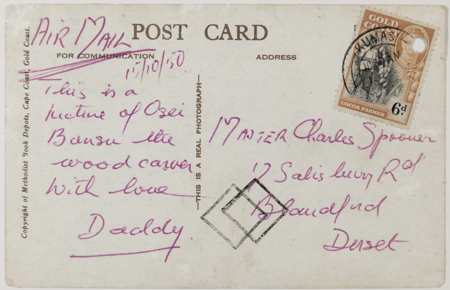 AIR MAIL
POST CARD
FOR COMMUNICATION
ADDRESS
15/10/50
This is a
picture of Osei
Bonsu the
wood carver
With love
Daddy
MASTER Charles Spooner
17 Salisbury Rd
Blandford
Dorset
Copyright of Methodist Book Depots, Cape Coast, Gold Coast.
—THIS IS A REAL PHOTOGRAPH—
GOLD
COCOA FARMER
6d
KUMASI